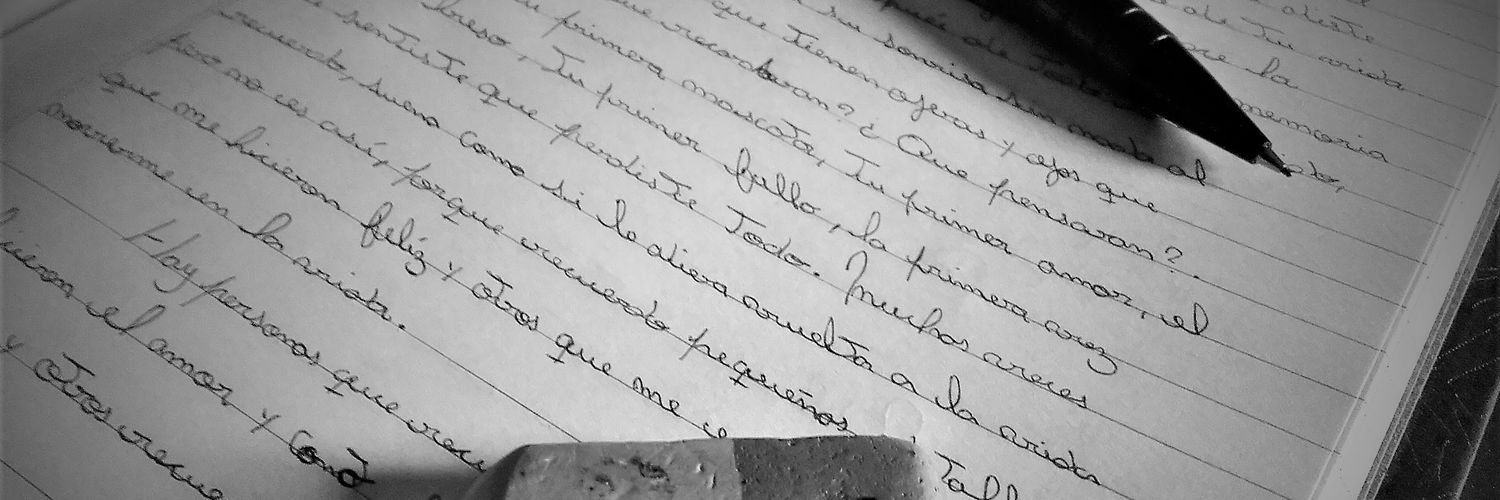 diste
de tu vida
la memoria
su sonrisa sin al
que tienen ojeras y ojos que
recordaban? ¿Que pensaran?.
primera mascota, tu primer amor, el
beso, tu primer fallo, la primera vez
sentiste que perdiste todo. Muchas veces
recuerdo, suena como si le diera vuelta a la vida
pero no es así, porque recuerdo pequeños Tall
que me hicieron feliz y otros que me
en la vida.
Hay personas que recu
icieron el amor y con
y otros recue